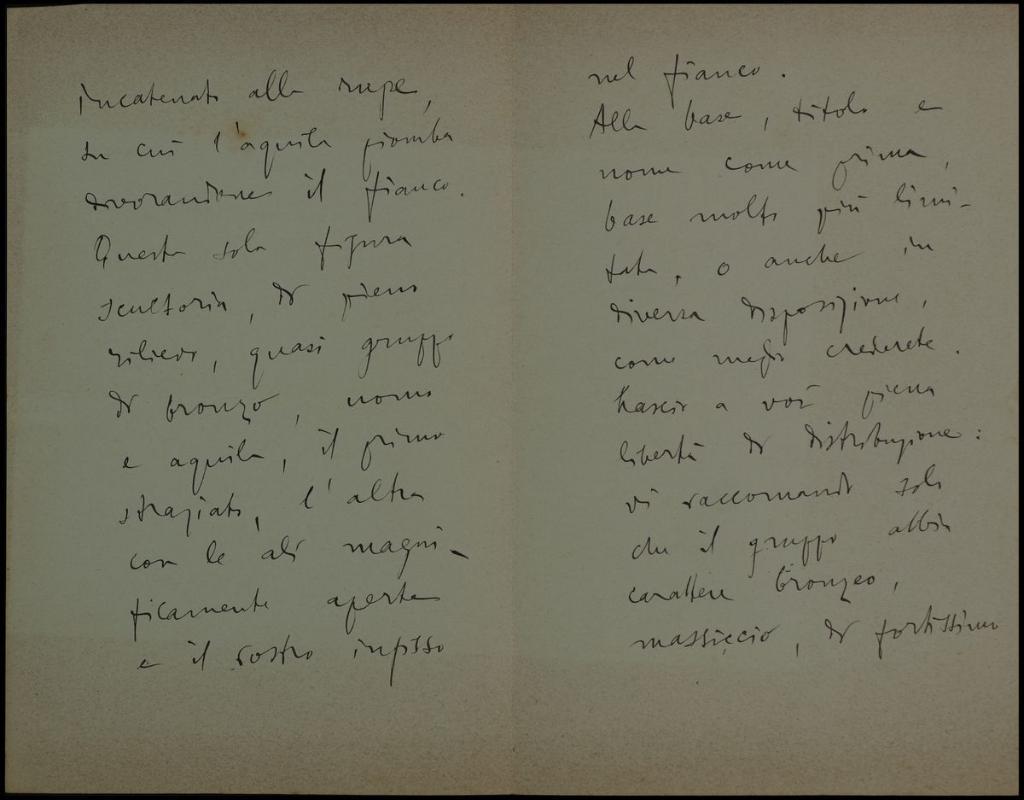 incatenato alla rupe,
su cui l'aquila piomba
divorandone il fianco.
Questa sola figura
scultoria, di pieno
rilievo, quasi gruppo
di bronzo, uomo
e aquila, il primo
straziato, l'altra
con le ali magni-
ficamente aperte
e il rostro infisso
nel fianco.
Alla base, titolo e
nome come prima,
base molto più limi-
tata, o anche in
diversa disposizione,
come meglio crederete.
Lascio a voi piena
libertà di distribuzione:
vi raccomando solo
che il gruppo abbia
carattere bronzeo,
massiccio, di fortissimo